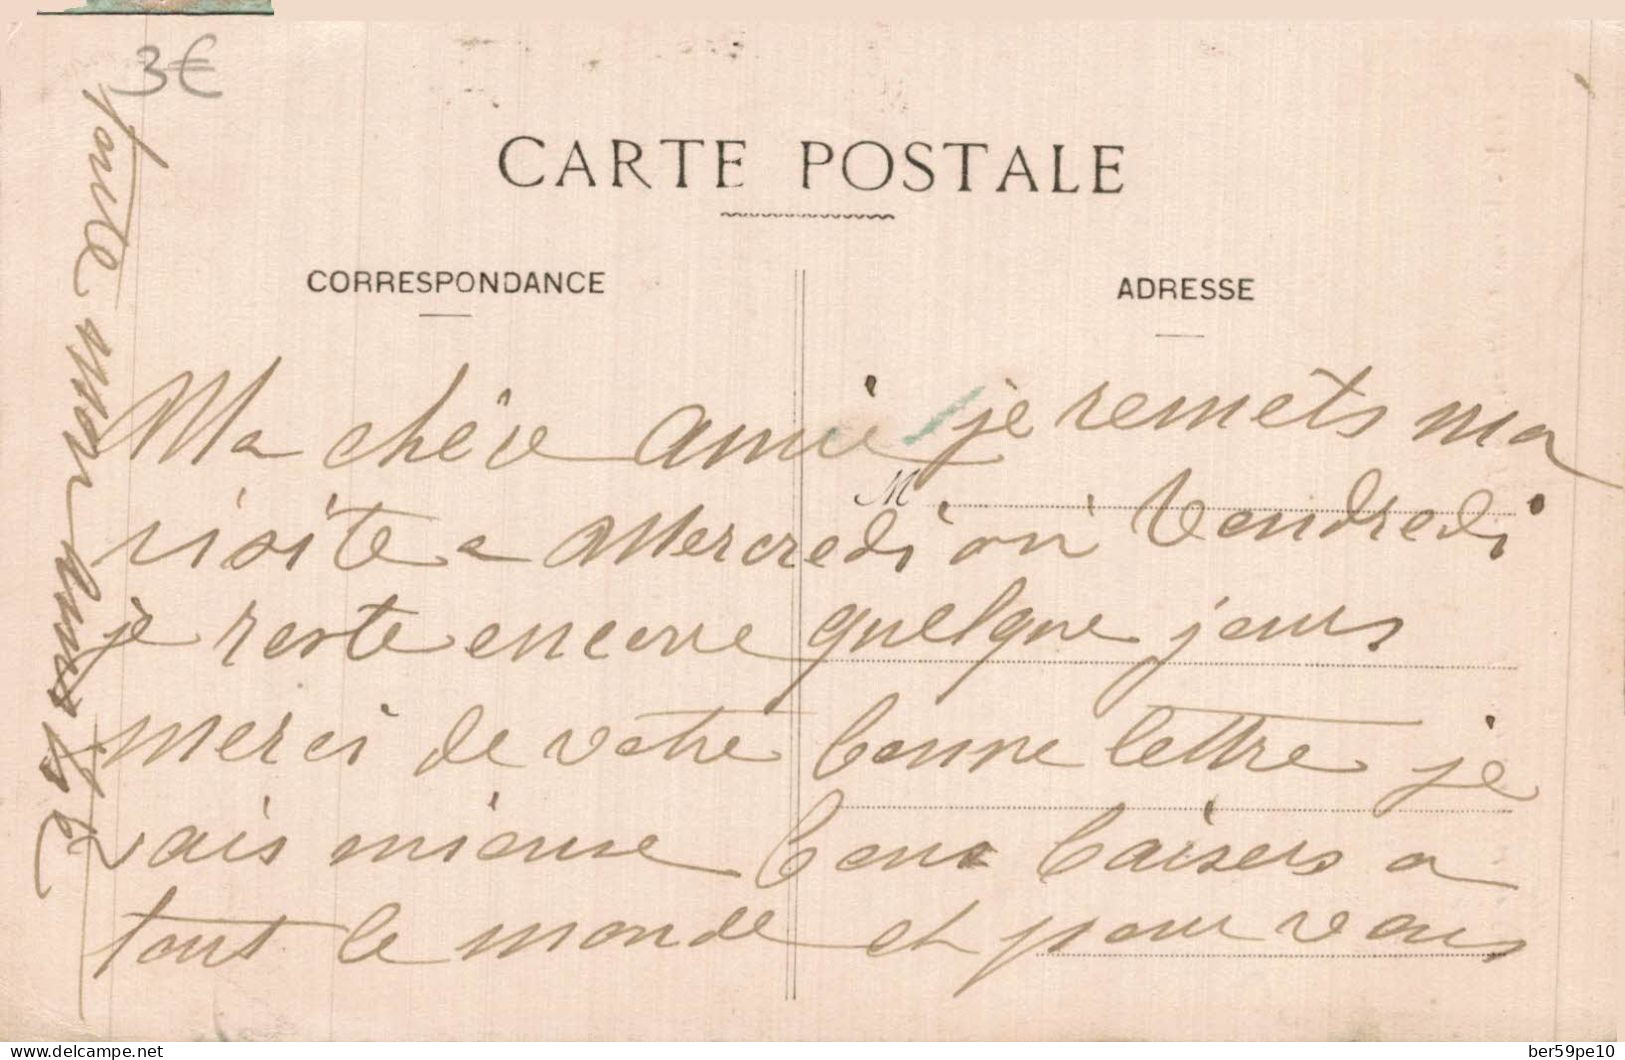 3€
CARTE POSTALE
CORRESPONDANCE
ADRESSE
M
Ma chère amie je remets ma
visite a Mercredi ou Vendredi
je reste encore quelque jours
merci de votre bonne lettre je
vais mieuse bons baisers a
tout le monde et pour vous
toute mon
delcampe.net
ber59pe10